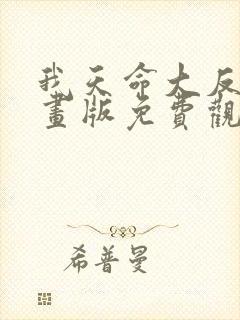 我天命大反
畫版免費觀
希普曼